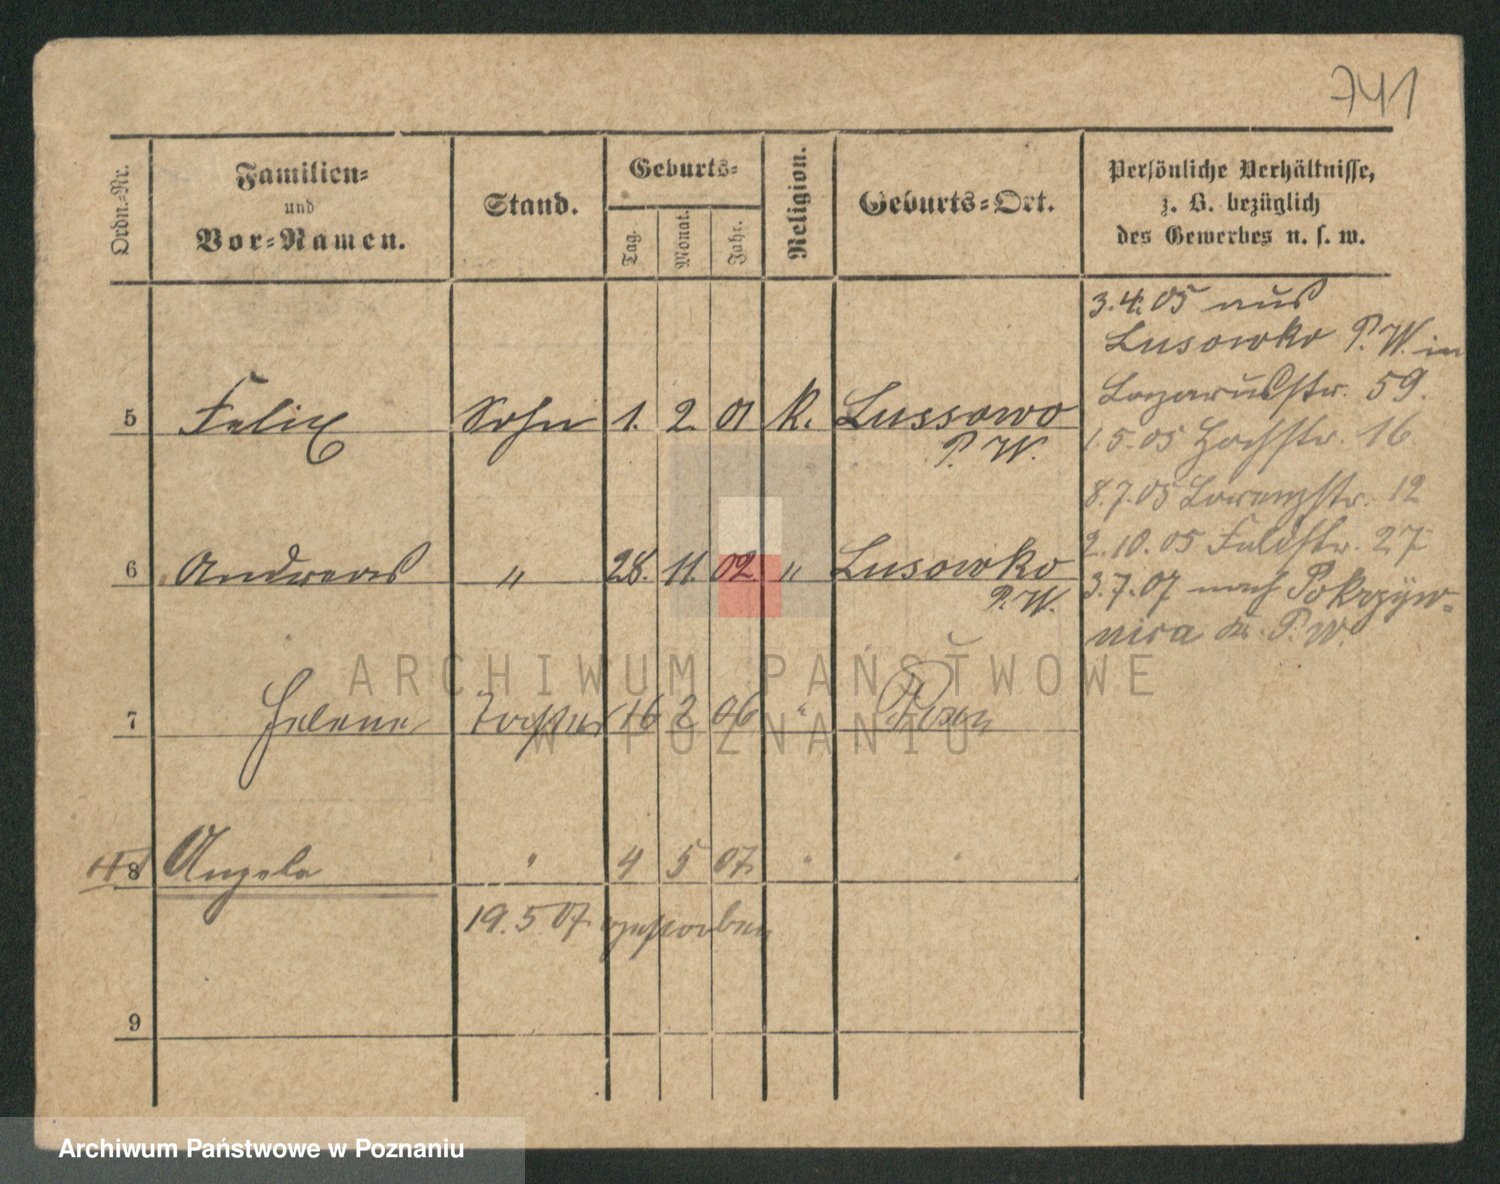 741
Ordn.-Nr.
Familien-
und
Vor-Namen.
Stand.
Geburts-
Tag.
Monat.
Jahr.
Religion.
Geburts-Ort.
Persönliche Verhältnisse,
z. B. bezüglich
des Gewerbes u. s. w.
5 Felix Sohn 1. 2. 01 K. Lussowo
P. W.
6 Andreas " 28. 11. 02 " Lusowko
P. W.
7 Helene Tochter 16 2 06 " Posen
8 Angela " 4 5 07 " "
19. 5 07 gestorben
9
3.4.05 aus
Lusowko P. W. in
Lazarusstr. 59.
1.5.05 Hochstr. 16.
8.7.05 Lorenzstr. 12
2.10.05 Feldstr. 27
3.7.07 nach Pokrzyw-
nica P. W.
ARCHIWUM PAŃSTWOWE
W POZNANIU
Archiwum Państwowe w Poznaniu